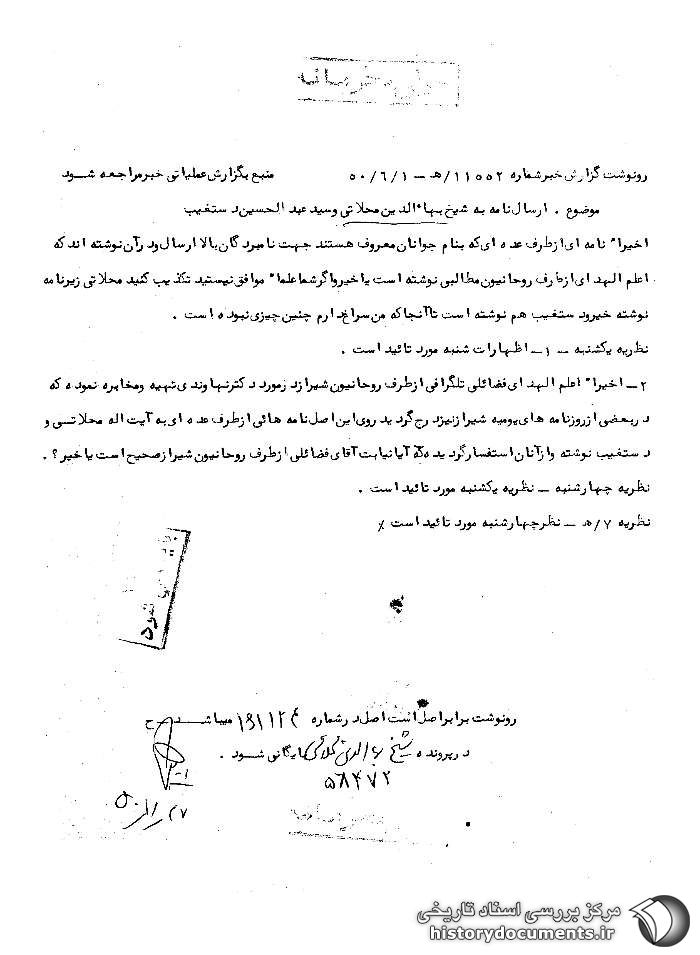 رونوشت گزارش خبر شماره ۱۱۵۵۲/هـ – ۵۰/۶/۱ منبع بگزارش عملیاتی خبر مراجعه شود
موضوع . ارسال نامه به شیخ بهاءالدین محلاتی وسید عبدالحسین دستغیب
اخیراً نامه ای از طرف عده ای که بنام جوانان معروف هستند جهت نامبردگان بالا ارسال و در آن نوشته اند که
اعلم الهدای از طرف روحانیون مطالبی نوشته است یا خیر و اگر شما علماء موافق نیستید تکذیب کنید محلاتی زیر نامه
نوشته خیر و دستغیب هم نوشته است تا آنجا که من سراغ دارم چنین چیزی نبوده است .
نظریه یکشنبه – ۱– اظهارات شنبه مورد تائید است .
۲– اخیراً اعلم الهدای فضائلی تلگرافی از طرف روحانیون شیراز در مورد دکتر نهاوندی تهیه و مخابره نموده که
در بعضی از روزنامه های یومیه شیراز نیز درج گردید روی این اصل نامه هائی از طرف عده ای به آیت اله محلاتی و
دستغیب نوشته و از آنان استفسار گردیده که آیا نیابت آقای فضائلی از طرف روحانیون شیراز صحیح است یا خیر ؟ .
نظریه چهارشنبه – نظریه یکشنبه مورد تائید است .
نظریه ۷/هـ – نظر چهارشنبه مورد تائید است ٪
رونوشت برابر اصل است اصل در شماره میباشد ح
در پرونده شیخ بهاالدین محلاتی بایگانی شود .
۵۸۴۷۲
مرکز بررسی اسناد تاریخی
historydocuments.ir